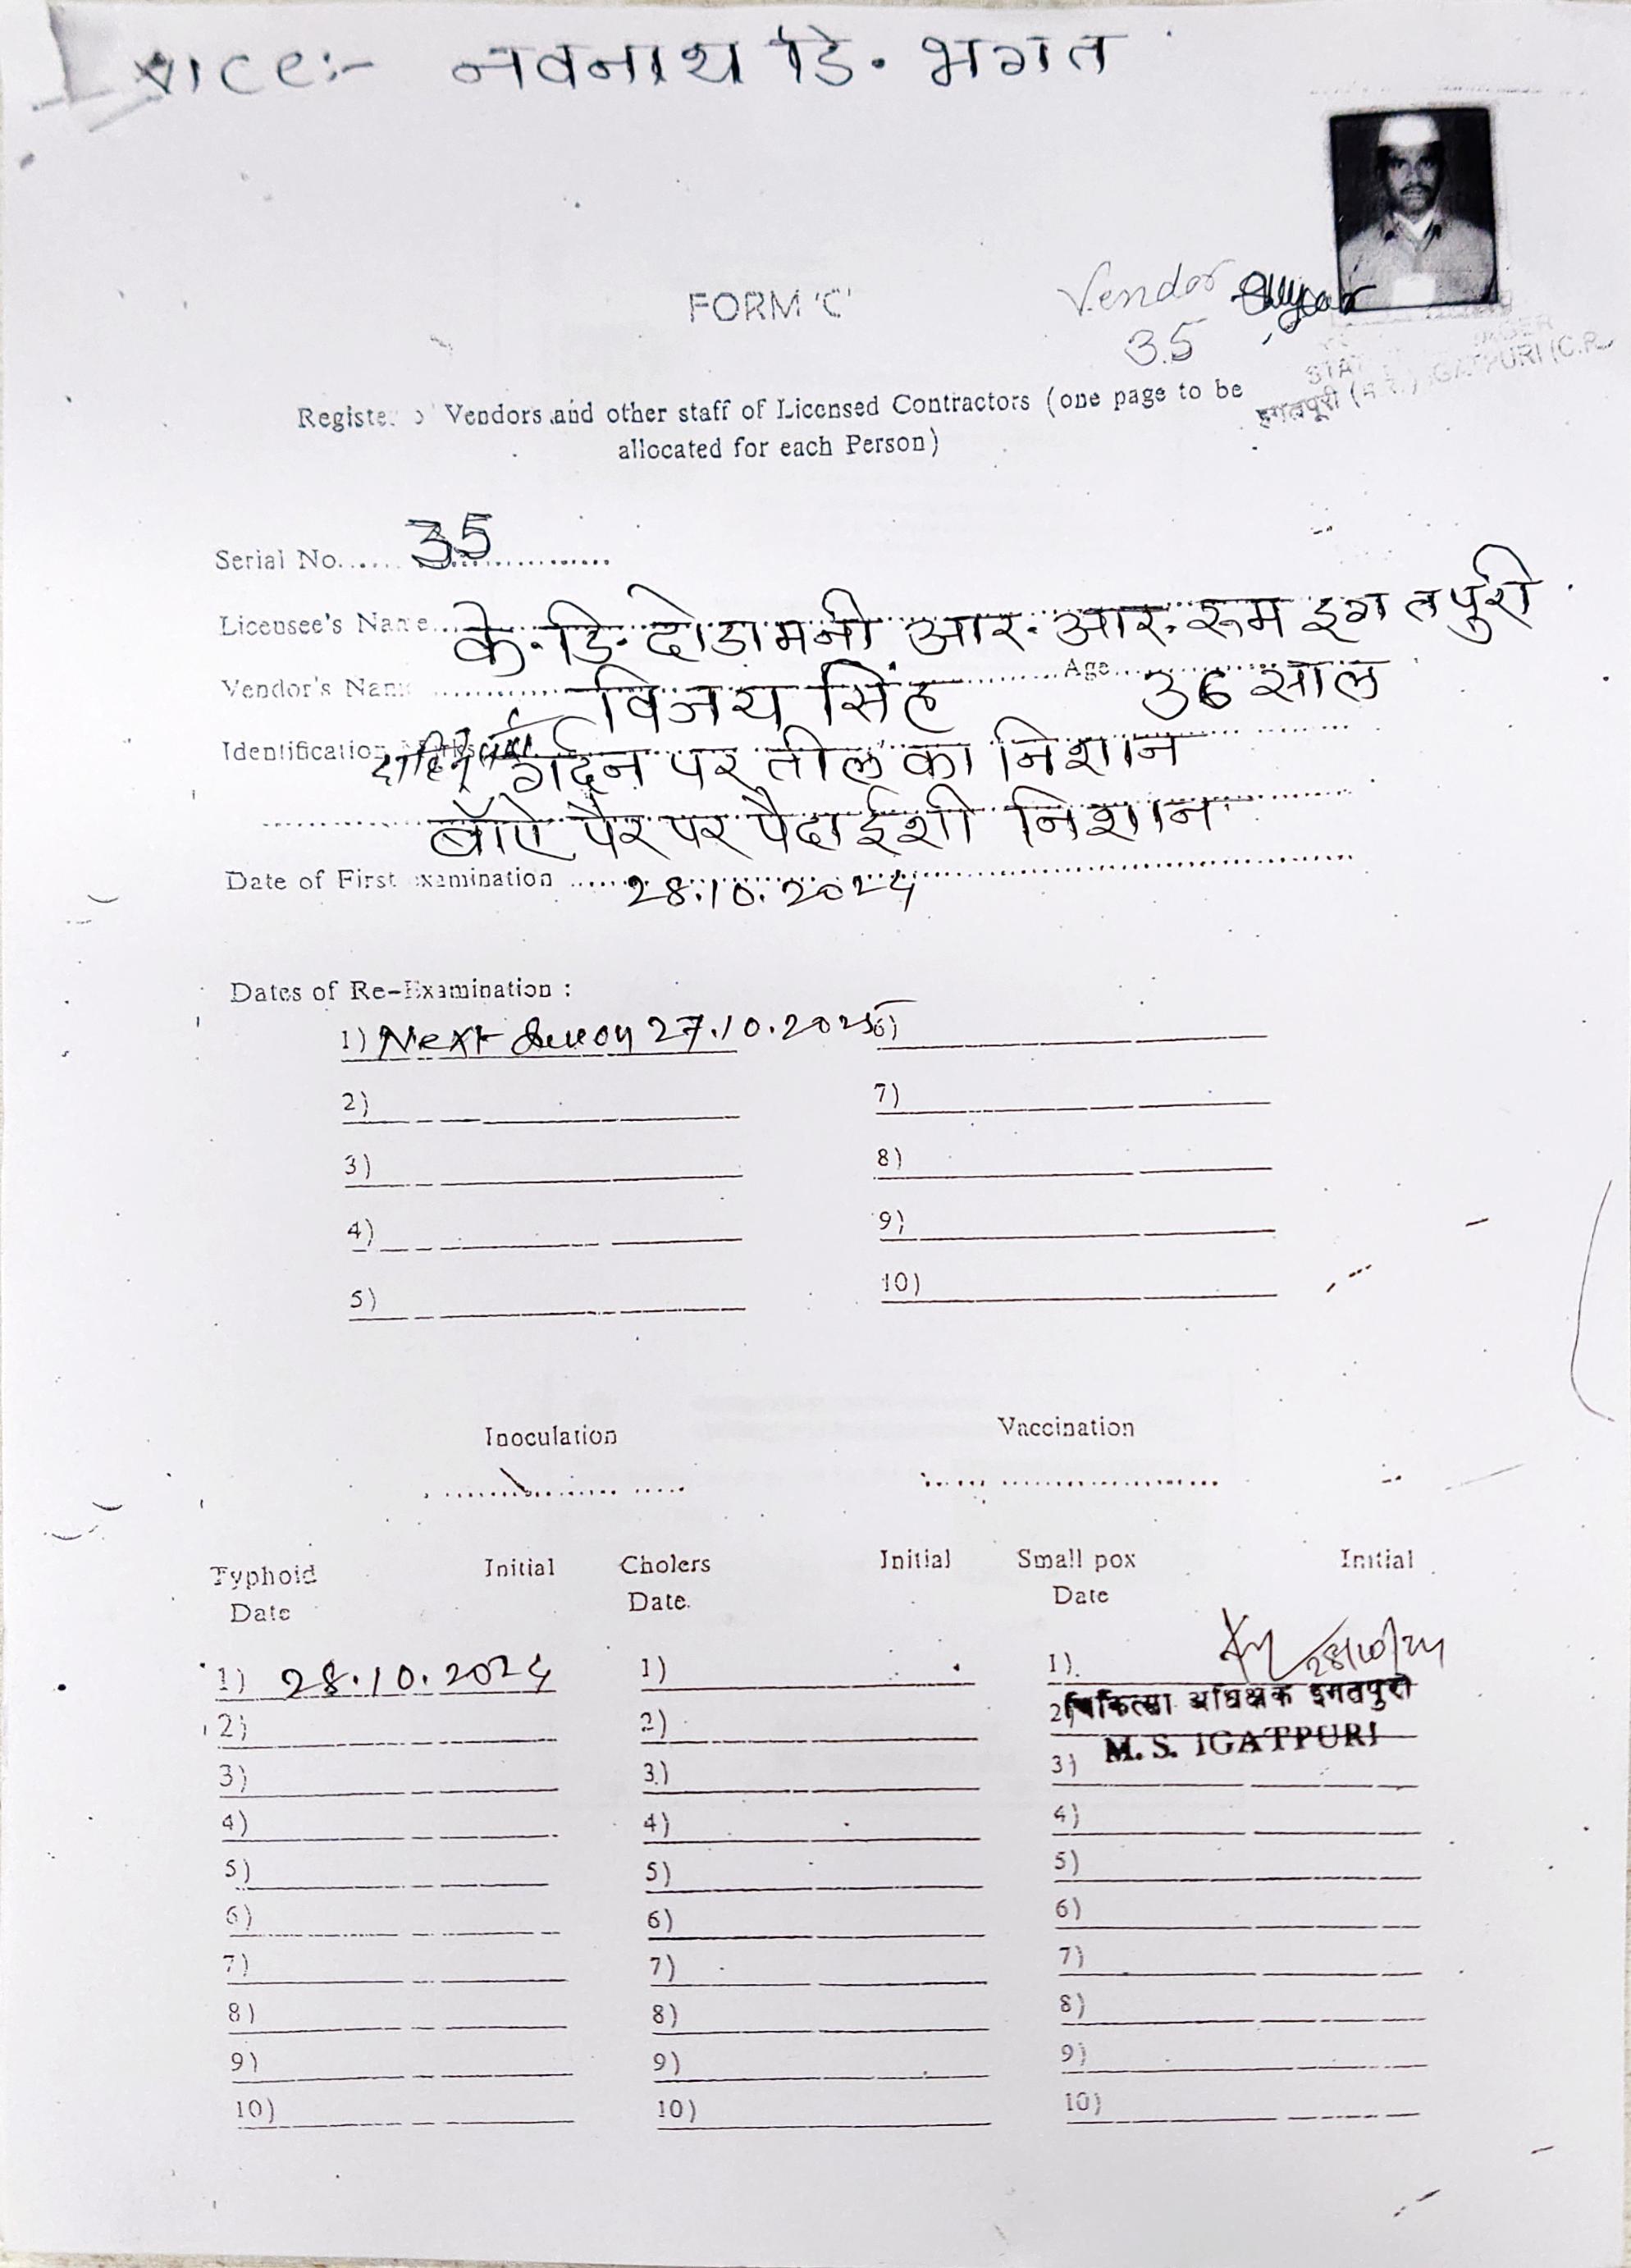 vice:- नवनाथ डि. भगत
FORM 'C'
Vendor
35
STAT IGATPURI (C.R.
इगतपूरी (म. रे.)
Register of Vendors and other staff of Licensed Contractors (one page to be
allocated for each Person)
Serial No. 35
Licensee's Name के. डि. दोडामनी आर. आर. रूम इगतपुरी
Vendor's Name विजय सिंह Age 36 साल
Identification Marks गर्दन पर तील का निशान
बॉऐ पैर पर पैदाईशी निशान
Date of First examination 28.10.2024
Dates of Re-Examination :
1) Next due on 27.10.2025 6)
2) 7)
3) 8)
4) 9)
5) 10)
Inoculation Vaccination
Typhoid Initial Cholers Initial Small pox Initial
Date Date. Date
1) 28.10.2024 1) 1) 28/10/24
2) 2) 2) चिकित्सा अधिक्षक इगतपुरी
3) 3) 3) M. S. IGATPURI
4) 4) 4)
5) 5) 5)
6) 6) 6)
7) 7) 7)
8) 8) 8)
9) 9) 9)
10) 10) 10)